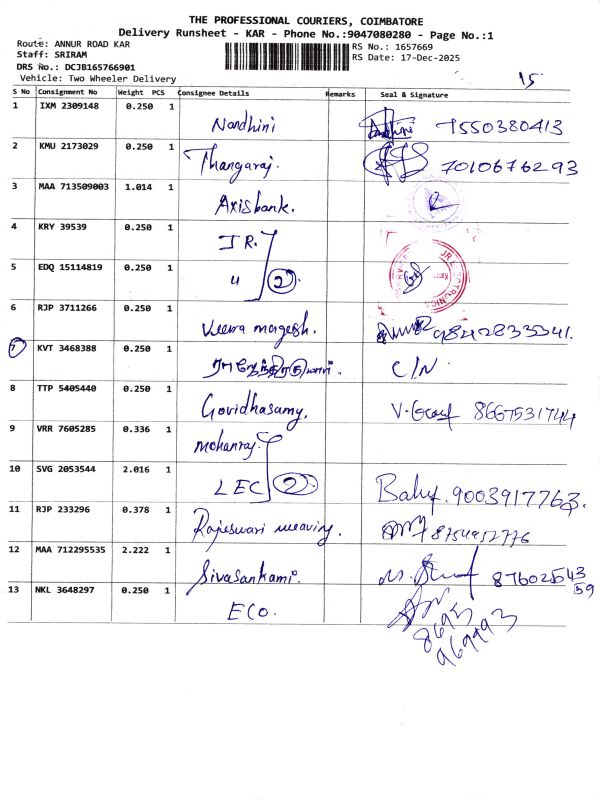 THE PROFESSIONAL COURIERS, COIMBATORE
Delivery Runsheet - KAR - Phone No.:9047080280 - Page No.:1
Route: ANNUR ROAD KAR
RS No.: 1657669
Staff: SRIRAM
RS Date: 17-Dec-2025
DRS No.: DCJB165766901
Vehicle: Two Wheeler Delivery
15
S No Consignment No Weight PCS Consignee Details Remarks Seal & Signature
1 IXM 2309148 0.250 1 Nandhini 7550380413
2 KMU 2173029 0.250 1 Thangaraj. 7010676293
3 MAA 713509003 1.014 1 Axisbank.
4 KRY 39539 0.250 1 J R.
5 EDQ 15114819 0.250 1 〃 2
6 RJP 3711266 0.250 1 Veera 9842833341.
7 KVT 3468388 0.250 1 C/N
8 TTP 5405440 0.250 1 Govidhasamy. 8667531744
9 VRR 7605285 0.336 1 Mohanraj
10 SVG 2053544 2.016 1 LEC 2 9003917763.
11 RJP 233296 0.378 1 Rajeswari weaving. 8754952776
12 MAA 712295535 2.222 1 Sivasankami. 8760254359
13 NKL 3648297 0.250 1 ECO.
8695
969993